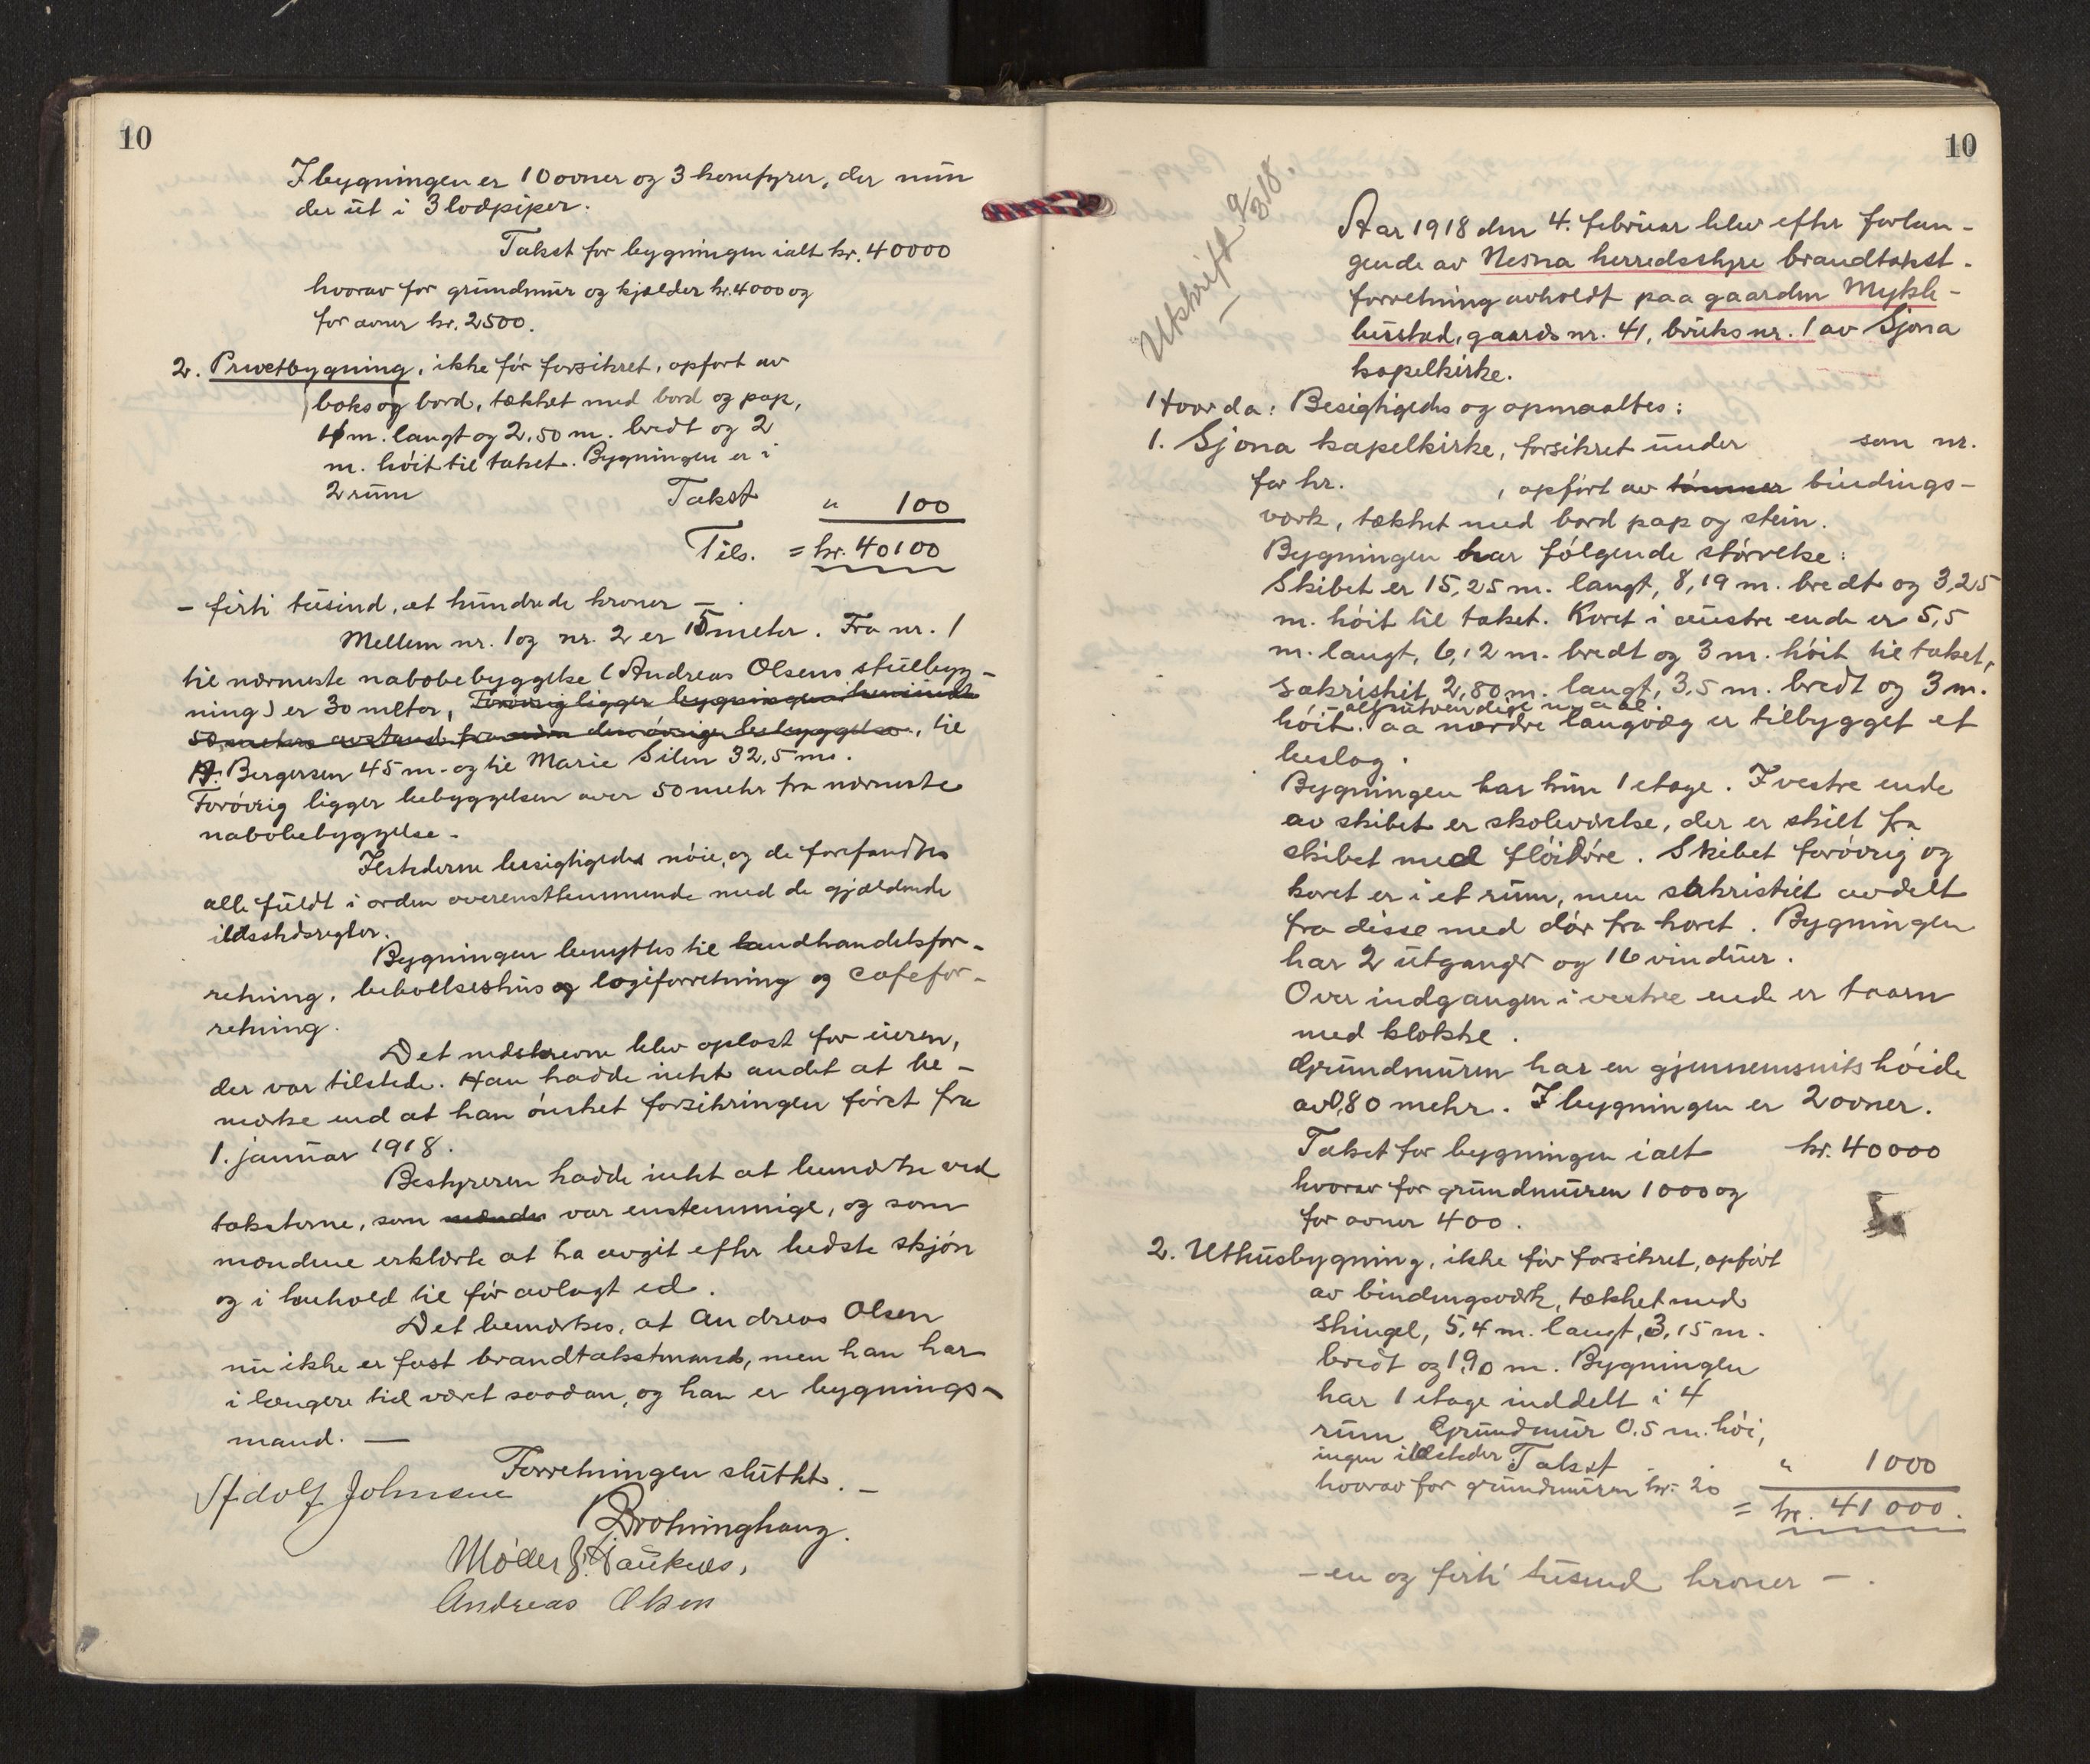 10
I bygningen er 10 ovner og 3 komfyrer, der mun
der ut i 3 lodpiper.
Takst for bygningen ialt kr. 40000
hvorav for grundmur og kjælder kr. 4000 og
for ovner kr. 2500.
2. Privetbygning, ikke før forsikret, opført av
boks og bord, tækket med bord og pap,
m. langt og 2,50 m. bredt og 2
m. høit til taket. Bygningen er i
2 rum Takst " 100
Tils. = kr. 40100
- førti tusind, et hundrede kroner -
Mellem nr. 1 og nr. 2 er 15 meter. Fra nr. 1
til nærmeste nabobebyggelse (Andreas Olsens stulbyg-
ning) er 30 meter, Forøvrig ligger bygningen
50 meters avstand fra den øvrige bebyggelse, til
A. Bergersen 45 m. og til Marie Silen 32,5 m.
Forøvrig ligger bebyggelsen over 50 meter fra nærmeste
nabobebyggelse.
Ilstederne besigtigedes nøie, og de forefandtes
alle fuldt i orden overenstemmende med de gjældende
ildstedsregler.
Bygningen benyttes til landhandelsfor-
retning, beboelseshus og logiforretning og cafefor-
retning.
Det nedskrevne blev oplæst for eieren,
der var tilstede. Han hadde intet andet at be-
merke end at han ønsket forsikringen føret fra
1. januar 1918.
Bestyreren hadde intet at bemerke ved
taksterne, som var enstemmige, og som
mændene erklærte at ha avgit efter bedste skjøn
og i henhold til før avlagt ed.
Det bemerkes, at Andreas Olsen
nu ikke er fast brandtakstmand, men han har
i længere tid været saadan, og han er bygnings-
mand. —
Forretningen sluttet. —
Adolf Johnsen
Dronninghaug.
Møller J. Hauknes,
Andreas Olsen
10
Utskrift 9/3 18.
Aar 1918 den 4. februar blev efter forlan-
gende av Nesna herredsstyre brandtakst-
forretning avholdt paa gaarden Mykle-
bustad, gaards nr. 41, bruks nr. 1 av Sjona
kapelkirke.
Hvorda: Besigtigedes og opmaaltes:
1. Sjona kapelkirke, forsikret under som nr.
for kr. , opført av tømmer bindings-
verk, tækket med bord pap og stein.
Bygningen har følgende størrelse:
Skibet er 15,25 m. langt, 8,19 m. bredt og 3,25
m. høit til taket. Koret i austre ende er 5,5
m. langt, 6,12 m. bredt og 3 m. høit til taket,
sakristiet 2,80 m. langt, 3,5 m. bredt og 3 m.
- alt utvendige maal.
høit. aa nordre langvæg er tilbygget et
beslag.
Bygningen har kun 1 etage. I vestre ende
av skibet er skoleværelse, der er skilt fra
skibet med fløidøre. Skibet forøvrig og
koret er i et rum, men sakristiet avdelt
fra disse med dør fra koret. Bygningen
har 2 utganger og 16 vinduer.
Over indgangen i vestre ende er taarn
med klokke.
Grundmuren har en gjennemsnits høide
av 0,80 meter. I bygningen er 2 ovner.
Takst for bygningen ialt kr. 40000
hvorav for grundmuren 1000 og
for ovner 400.
2. Uthusbygning, ikke før forsikret, opført
av bindingsverk, tækket med
shingel, 5,4 m. langt, 3,15 m.
bredt og 1,90 m. Bygningen
har 1 etage inddelt i 4
rum Grundmur 0.5 m. høi,
ingen ildsteder. Takst " 1000
hvorav for grundmuren kr. 20
= kr. 41000.
- en og førti tusind kroner -.